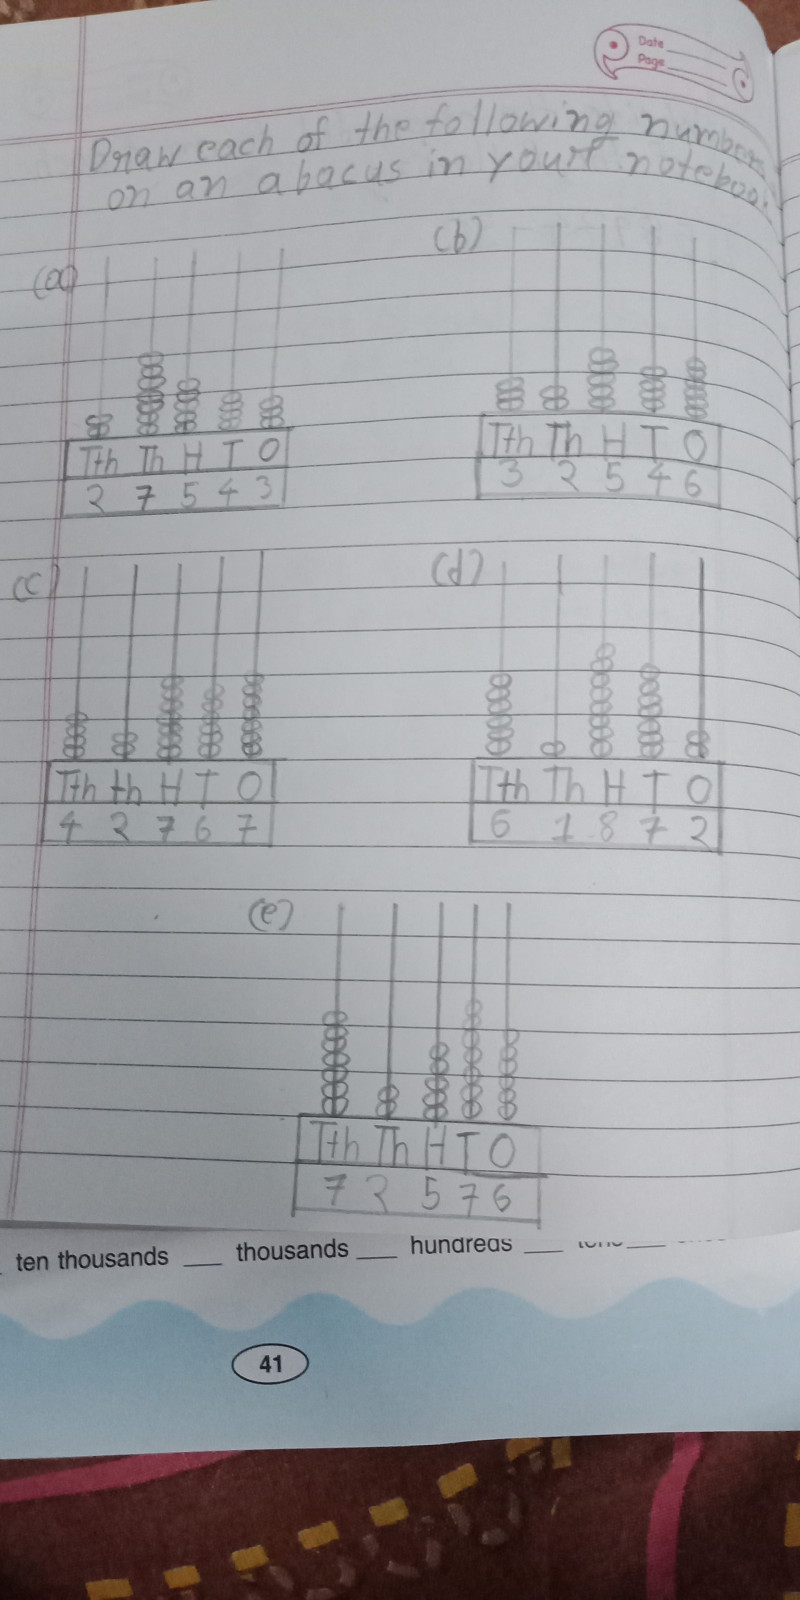 Date
Page
Draw each of the following numbers
on an abacus in your notebook
(a)
(b)
Tth Th H T O
2 7 5 4 3
Tth Th H T O
3 2 5 4 6
(c)
(d)
Tth th H T O
4 2 7 6 7
Tth Th H T O
6 1 8 7 2
(e)
Tth Th H T O
7 2 5 7 6
ten thousands ___ thousands ___ hundreds ___ ___
41